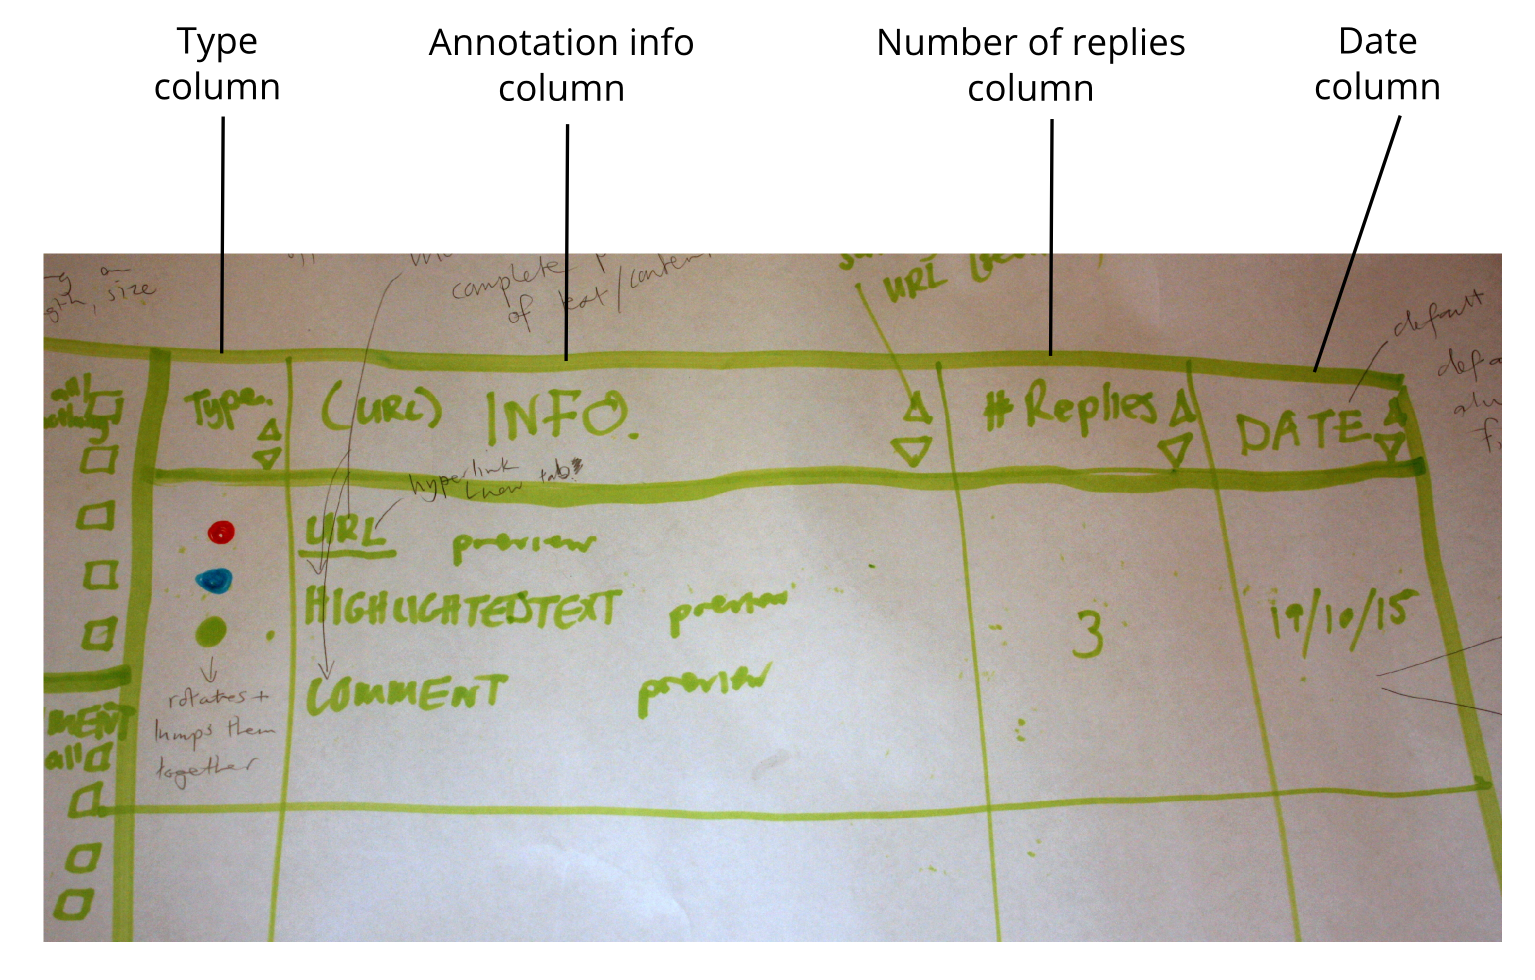 Type
column
Annotation info
column
Number of replies
column
Date
column
size
complete
of text/content
URL
default
all
Type.
(URL) INFO.
# Replies
DATE
hyperlink
new tab?
URL preview
HIGHLIGHTEDTEXT preview
3
19/10/15
COMMENT preview
rotates +
lumps them
together
MENT
all